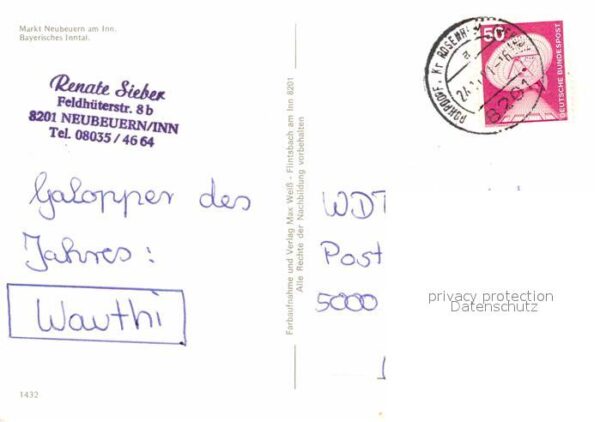 Markt Neubeuern am Inn.
Bayerisches Inntal.
Renate Sieber
Feldhüterstr. 8 b
8201 NEUBEUERN/INN
Tel. 08035 / 46 64
Galopper des
Jahres:
Wauthi
1432
Farbaufnahme und Verlag Max Weiß - Flintsbach am Inn 8201
Alle Rechte der Nachbildung vorbehalten
50
DEUTSCHE BUNDESPOST
ROHRDORF, Kr ROSENH
8201
WDT
Post
5000
privacy protection
Datenschutz